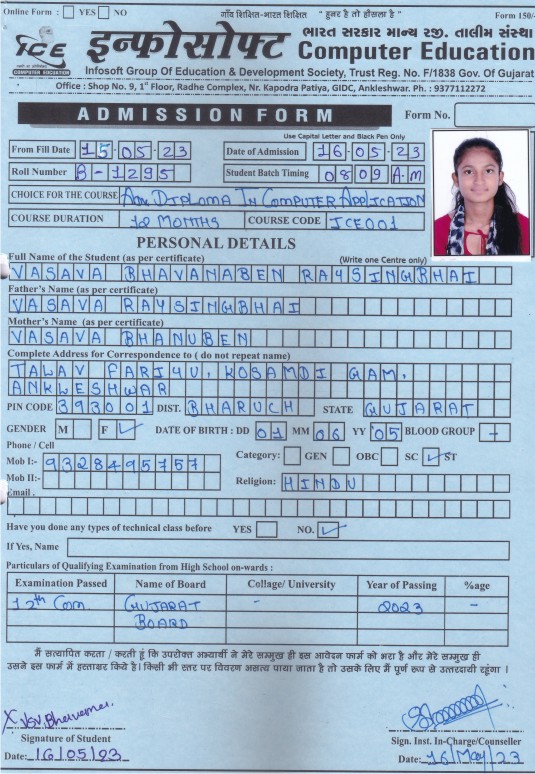 Online Form : YES NO
गाँव शिक्षित-भारत शिक्षित " हुनर है तो हौसला है "
Form 150/-
ICE
COMPUTER EDUCATION
इन्फोसोफ्ट ભારત સરકાર માન્ય રજી. તાલીમ સંસ્થા
Computer Education
Infosoft Group Of Education & Development Society, Trust Reg. No. F/1838 Gov. Of Gujarat
Office : Shop No. 9, 1st Floor, Radhe Complex, Nr. Kapodra Patiya, GIDC, Ankleshwar. Ph. : 9377112272
ADMISSION FORM Form No.
Use Capital Letter and Black Pen Only
From Fill Date 15-05-23 Date of Admission 16-05-23
Roll Number B-1295 Student Batch Timing 0809 A.M
CHOICE FOR THE COURSE Adv. Diploma In Computer Application
COURSE DURATION 12 MONTHS COURSE CODE ICE001
PERSONAL DETAILS
Full Name of the Student (as per certificate) (Write one Centre only)
VASAVA BHAVANABEN RAYSINGBHAI
Father's Name (as per certificate)
VASAVA RAYSINGBHAI
Mother's Name (as per certificate)
VASAVA BHANUBEN
Complete Address for Correspondence to ( do not repeat name)
TALAV FARIYU, KOSAMDI GAM,
ANKLESHWAR
PIN CODE 393001 DIST. BHARUCH STATE GUJARAT
GENDER M F DATE OF BIRTH : DD 01 MM 06 YY 05 BLOOD GROUP -
Phone / Cell
Mob I:- 9328495757 Category: GEN OBC SC ST
Mob II:- Religion: HINDU
Email .
Have you done any types of technical class before YES NO.
If Yes, Name
Particulars of Qualifying Examination from High School on-wards :
Examination Passed Name of Board Collage/ University Year of Passing %age
12th Com GUJARAT - 2023 -
BOARD
मैं सत्यापित करता / करती हूं कि उपरोक्त अभ्यार्थी ने मेरे सम्मुख ही इस आवेदन फार्म को भरा है और मेरे सम्मुख ही
उसने इस फार्म में हस्ताक्षर किये है। किसी भी स्तर पर विवरण असत्य पाया जाता है तो उसके लिए मैं पूर्ण रूप से उत्तरदायी रहूंगा ।
Signature of Student Sign. Inst. In-Charge/Counseller
Date: 16/05/23 Date: 16/May/23